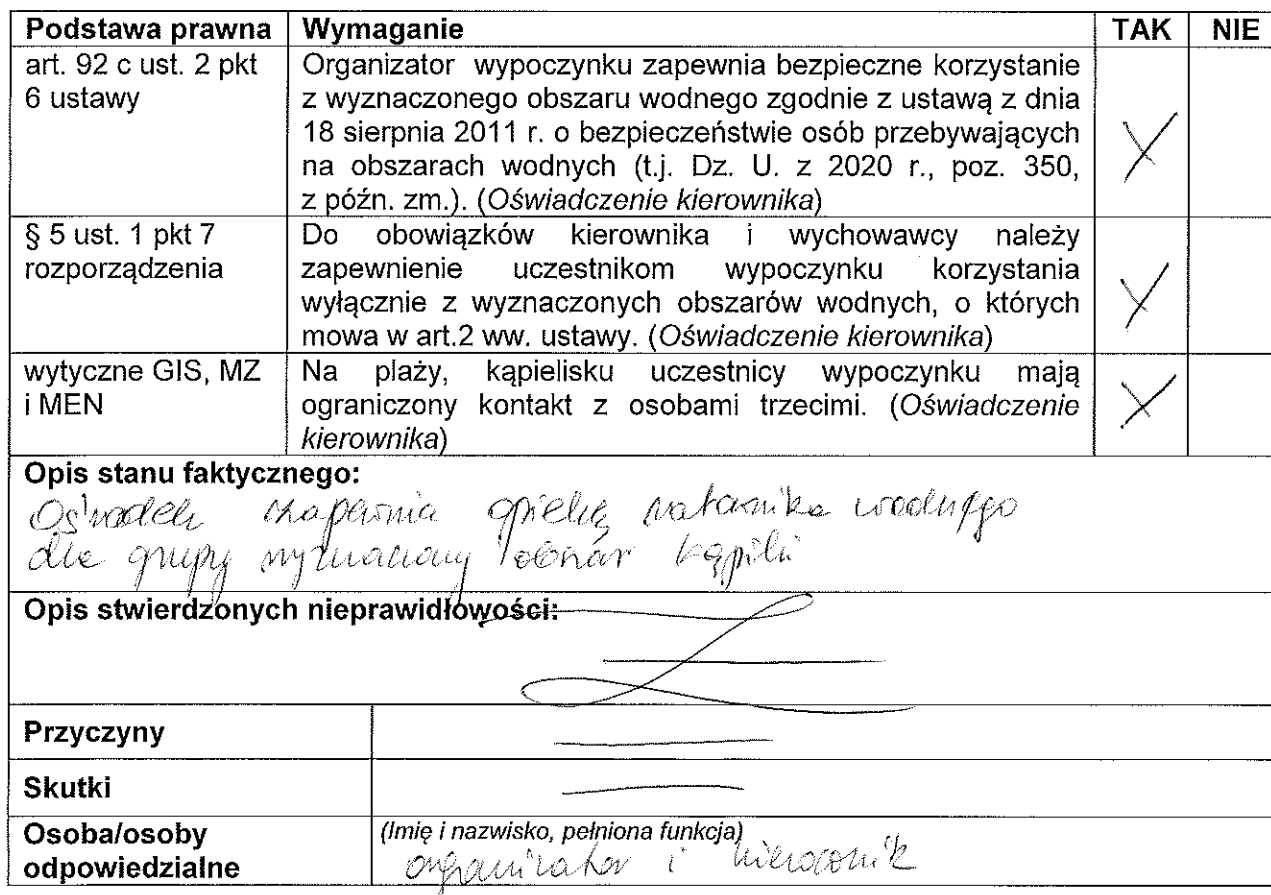 Podstawa prawna Wymaganie TAK NIE
art. 92 c ust. 2 pkt
6 ustawy
Organizator wypoczynku zapewnia bezpieczne korzystanie
z wyznaczonego obszaru wodnego zgodnie z ustawą z dnia
18 sierpnia 2011 r. o bezpieczeństwie osób przebywających
na obszarach wodnych (t.j. Dz. U. z 2020 r., poz. 350,
z późn. zm.). (Oświadczenie kierownika)
X
§ 5 ust. 1 pkt 7
rozporządzenia
Do obowiązków kierownika i wychowawcy należy
zapewnienie uczestnikom wypoczynku korzystania
wyłącznie z wyznaczonych obszarów wodnych, o których
mowa w art.2 ww. ustawy. (Oświadczenie kierownika)
X
wytyczne GIS, MZ
i MEN
Na plaży, kąpielisku uczestnicy wypoczynku mają
ograniczony kontakt z osobami trzecimi. (Oświadczenie
kierownika)
X
Opis stanu faktycznego:
Ośrodek zapewnia opiekę ratownika wodnego
dla grupy wyznaczony obszar kąpieli
Opis stwierdzonych nieprawidłowości:
Przyczyny
Skutki
Osoba/osoby
odpowiedzialne
(Imię i nazwisko, pełniona funkcja)
organizator i kierownik